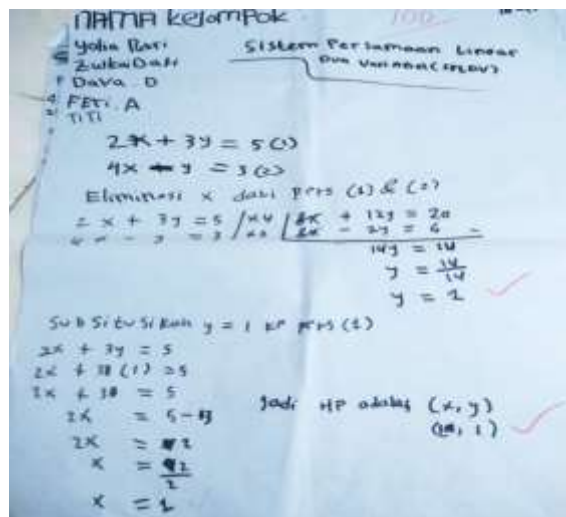 NAMA kelompok
100
Yolia Putri
Sistem Persamaan Linear
Dua Variabel (SPLDV)
Dava. D
FETI. A
TITI
2x + 3y = 5 (1)
4x - y = 3 (2)
Eliminasi x dari pers (1) & (2)
2x + 3y = 5 | x4 | 8x + 12y = 20
4x - y = 3 | x2 | 8x - 2y = 6 -
14y = 14
y = 14/14
y = 1
Subsitusikan y = 1 ke pers (1)
2x + 3y = 5
2x + 3 (1) = 5
2x + 3 = 5
2x = 5-3
2x = 2
x = 2/2
x = 1
Jadi HP adalah (x, y)
(1, 1)